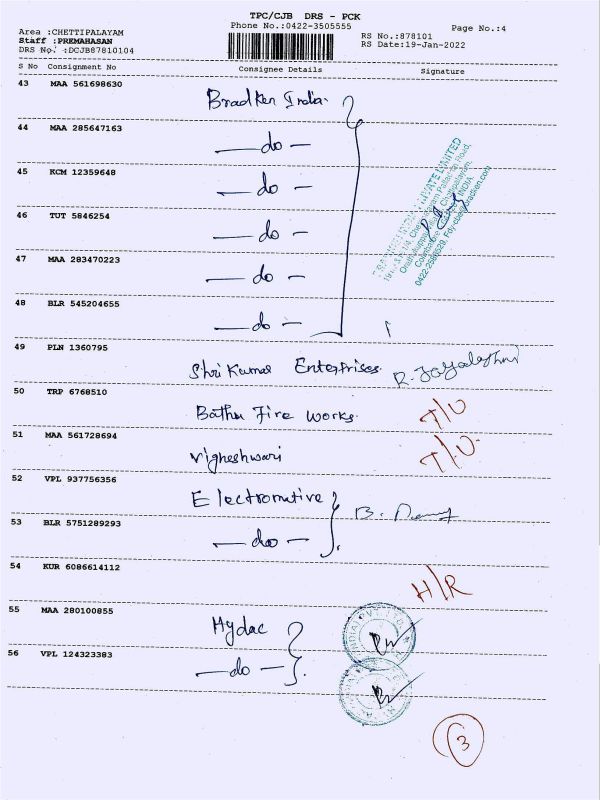 TPC/CJB DRS - PCK
Phone No.:0422-3505555
Page No.:4
Area :CHETTIPALAYAM
Staff :PREMAHASAN
DRS No. :DCJB87810104
RS No.:878101
RS Date:19-Jan-2022
S No Consignment No Consignee Details Signature
43 MAA 561698630
Bradken India.
44 MAA 285647163
— do —
45 KCM 12359648
— do —
46 TUT 5846254
— do —
47 MAA 283470223
— do —
48 BLR 545204655
— do —
PRIVATE LIMITED
Coimbatore
INDIA
49 PLN 1360795
Shri Kumar Enterprises. R. Jayalakshmi
50 TRP 6768510
Bathu Fire Works. T/O
51 MAA 561728694
Vigneshwari T/O.
52 VPL 937756356
Electromative B.
53 BLR 5751289293
— do —
54 KUR 6086614112
H/R
55 MAA 280100855
Hydac
56 VPL 124323383
— do —
3